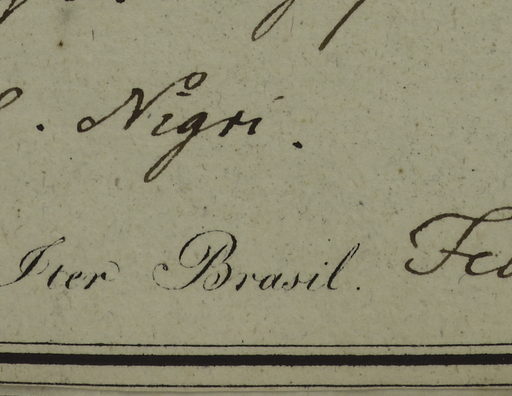 . Nigri.
Iter Brasil. Feb